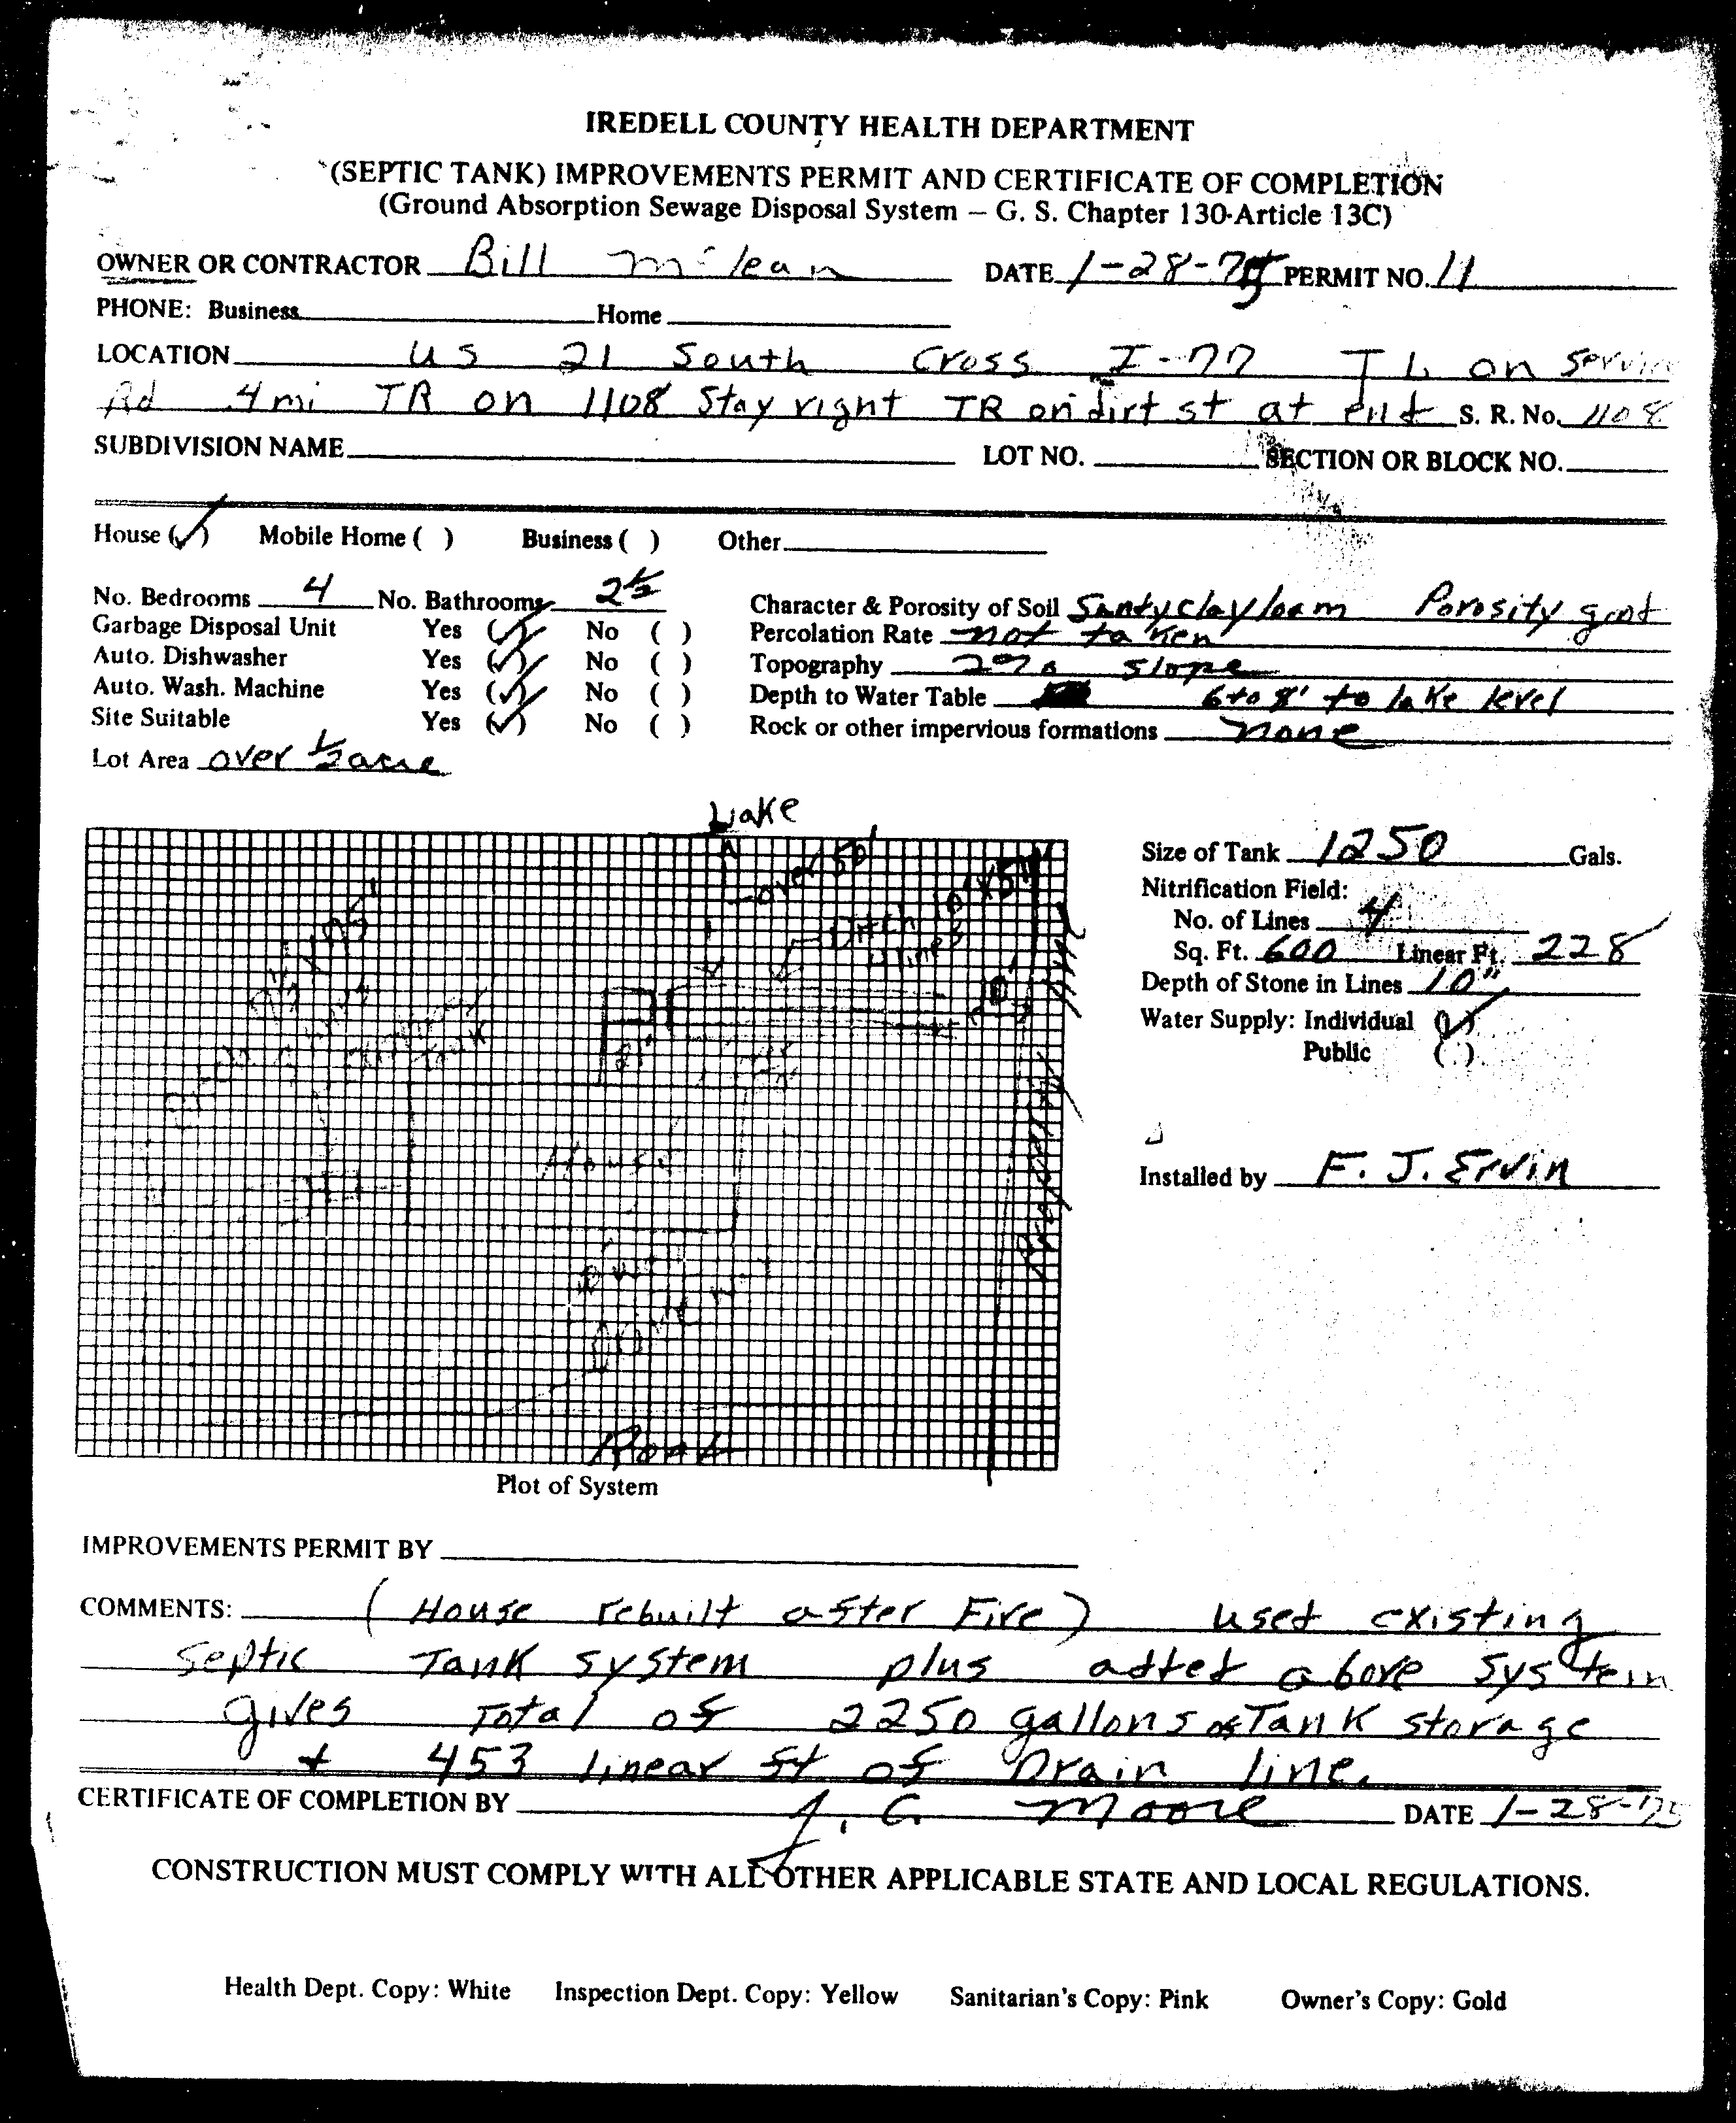 IREDELL COUNTY HEALTH DEPARTMENT
(SEPTIC TANK) IMPROVEMENTS PERMIT AND CERTIFICATE OF COMPLETION
(Ground Absorption Sewage Disposal System – G. S. Chapter 130-Article 13C)
OWNER OR CONTRACTOR Bill McLean DATE 1-28-75 PERMIT NO. 11
PHONE: Business Home
LOCATION US 21 South Cross I-77 TL on Service
Rd .4 mi TR on 1108 Stay right TR on dirt st at end S. R. No. 1108
SUBDIVISION NAME LOT NO. SECTION OR BLOCK NO.
House (✓) Mobile Home ( ) Business ( ) Other
No. Bedrooms 4 No. Bathrooms 2½ Character & Porosity of Soil Sandy clay loam Porosity good
Garbage Disposal Unit Yes (✓) No ( ) Percolation Rate not taken
Auto. Dishwasher Yes (✓) No ( ) Topography 2% slope
Auto. Wash. Machine Yes (✓) No ( ) Depth to Water Table 6 to 8' to lake level
Site Suitable Yes (✓) No ( ) Rock or other impervious formations none
Lot Area over ½ acre
Lake
over 50'
Ditch
4 lines
10'
Property line
House
Road
Size of Tank 1250 Gals.
Nitrification Field:
No. of Lines 4
Sq. Ft. 600 Linear Ft. 228
Depth of Stone in Lines 10"
Water Supply: Individual (✓)
Public ( )
Installed by F. J. Ervin
Plot of System
IMPROVEMENTS PERMIT BY
COMMENTS: (House rebuilt after Fire) used existing
septic Tank system plus added above system
gives Total of 2250 gallons of Tank storage
+ 453 linear ft of Drain line.
CERTIFICATE OF COMPLETION BY J. C. Moore DATE 1-28-75
CONSTRUCTION MUST COMPLY WITH ALL OTHER APPLICABLE STATE AND LOCAL REGULATIONS.
Health Dept. Copy: White Inspection Dept. Copy: Yellow Sanitarian's Copy: Pink Owner's Copy: Gold